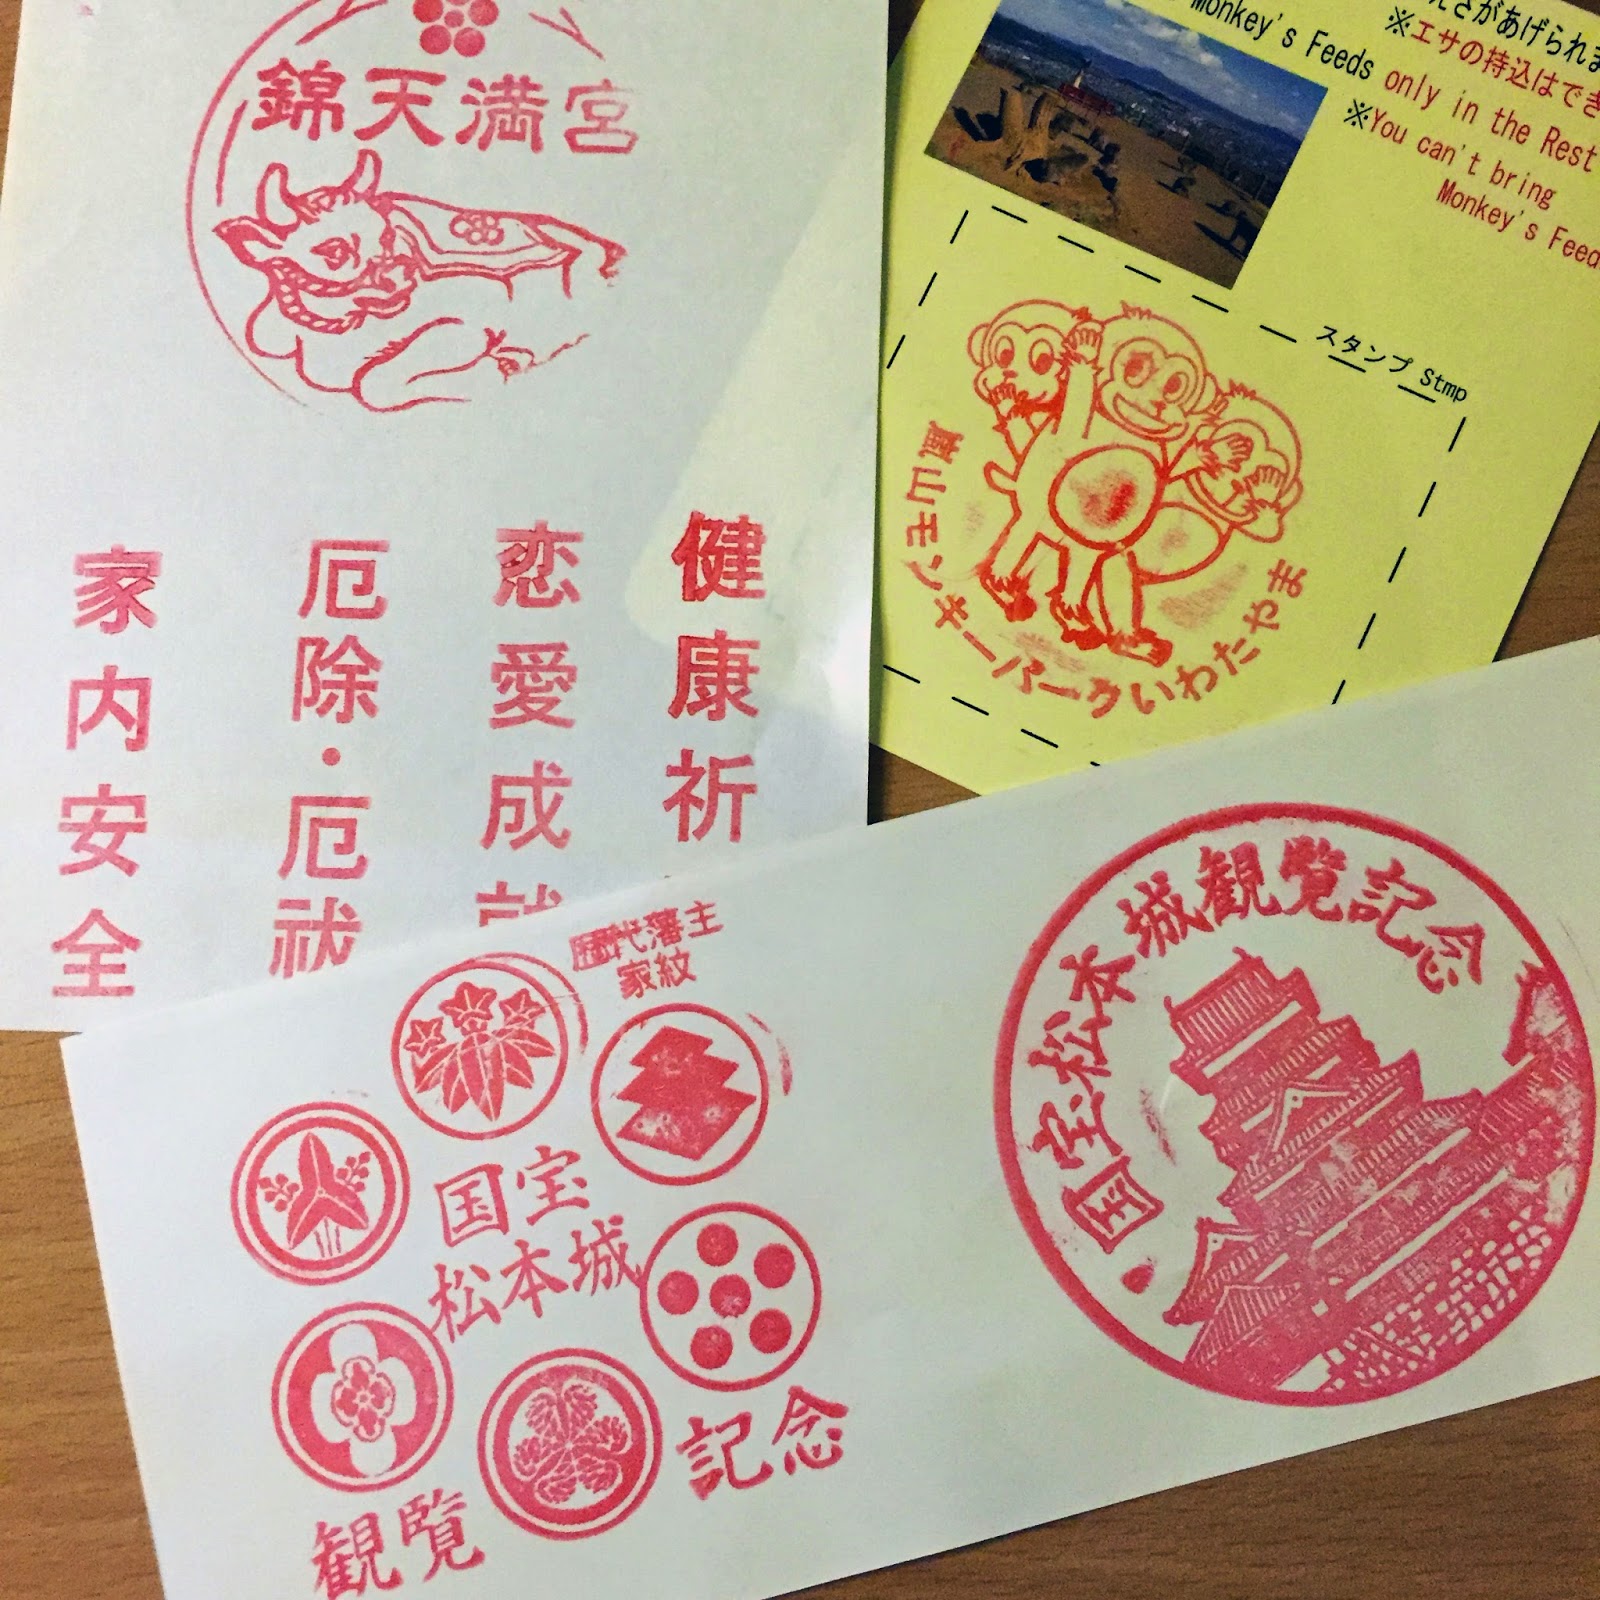 錦天満宮
健康祈
恋愛成就
厄除・厄祓
家内安全
えさがあげられま
※エサの持込はでき
Monkey's Feeds only in the Rest
※You can't bring
Monkey's Feed
スタンプ Stmp
嵐山モンキーパークいわたやま
歴代藩主
家紋
国宝
松本城
観覧
記念
国宝松本城観覧記念